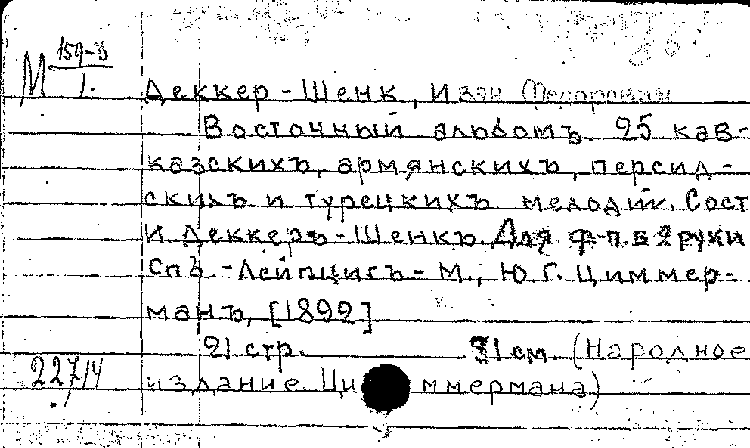 М 159-8
1.
Деккер-Шенк, Иван Федорович
Восточный альбомъ. 25 кав-
казскихъ, армянскихъ, персид-
скихъ и турецкихъ мелодий. Сост
И. Деккеръ-Шенкъ. Для ф-п. в 2 руки
Спъ.-Лейпцигъ-М., Ю.Г. Циммер-
манъ, [1892]
21 стр. 31 см. (Народное
издание Циммермана)
227/4